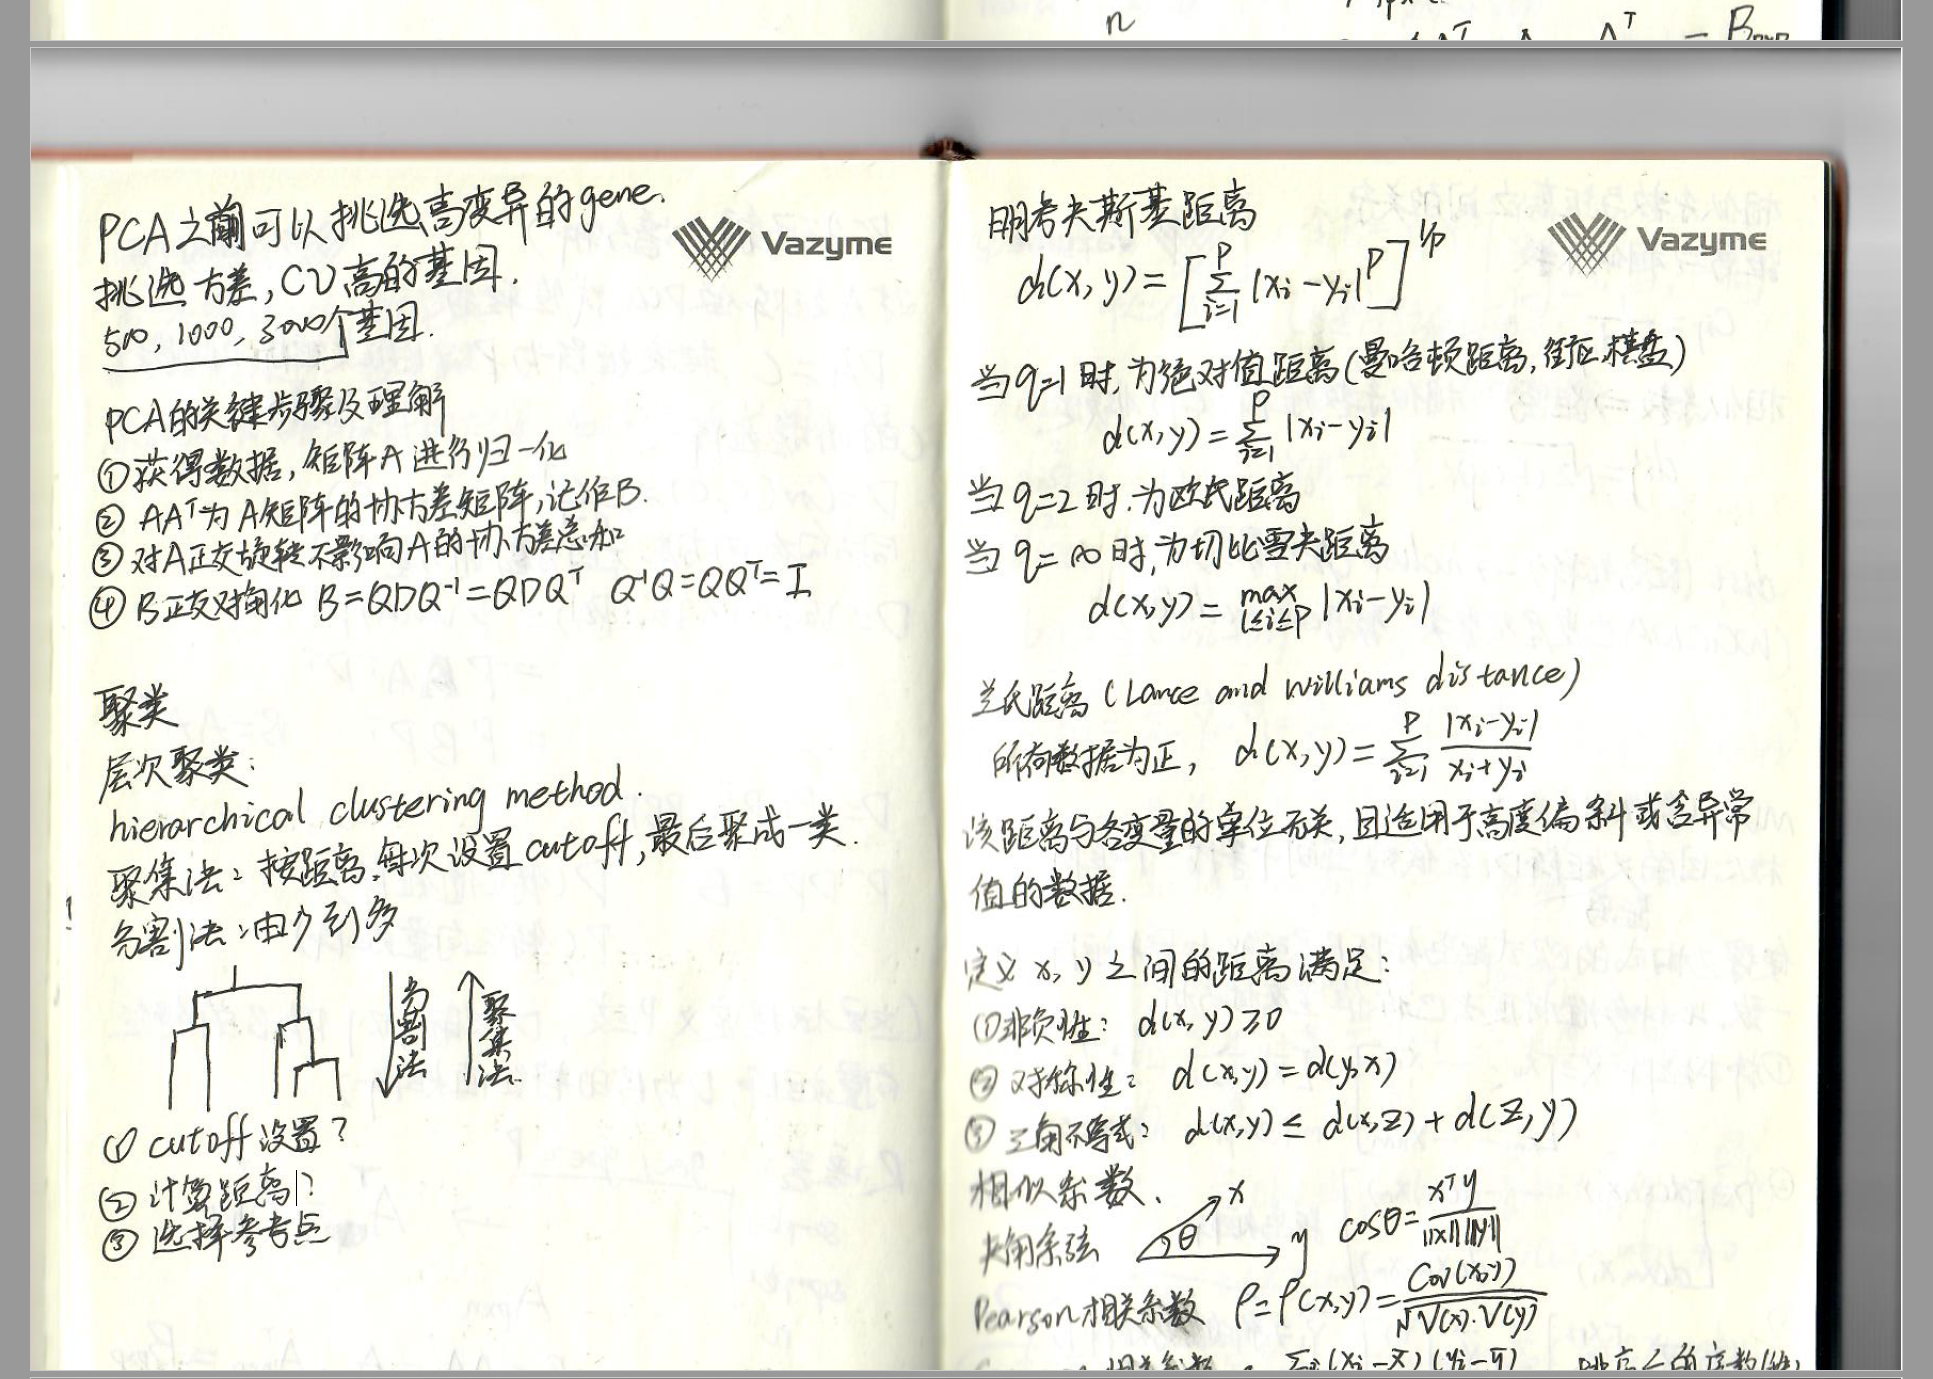 n
PCA之前可以挑选高变异的gene.
挑选方差,CV高的基因.
500, 1000, 3000个基因.
Vazyme
PCA的关键步骤及理解
①获得数据,矩阵A进行归一化
② AAᵀ为A矩阵的协方差矩阵,记作B.
③ 对A正交旋转不影响A的协方差总和
④ B正交对角化 B=QDQ⁻¹=QDQᵀ Q⁻¹Q=QQᵀ=I
聚类
层次聚类:
hierarchical clustering method.
聚集法: 按距离,每次设置cutoff,最后聚成一类.
分割法:由少到多
分割法
聚集法
① cutoff设置?
② 计算距离?
③ 选择参考点
明考夫斯基距离
Vazyme
d(x,y)=[∑_{i=1}^{p}|xi-yi|^p]^{1/p}
当q=1时,为绝对值距离(曼哈顿距离,街区,棋盘)
d(x,y)=∑_{i=1}^{p}|xi-yi|
当q=2时.为欧氏距离
当q=∞时,为切比雪夫距离
d(x,y)=max_{1≤i≤p}|xi-yi|
兰氏距离(Lance and Williams distance)
所有数据为正, d(x,y)=∑_{i=1}^{p} |xi-yi|/(xi+yi)
该距离与各变量的单位无关,且适用于高度偏斜或含异常
值的数据.
定义x,y之间的距离满足:
①非负性: d(x,y)≥0
② 对称性: d(x,y)=d(y,x)
③ 三角不等式: d(x,y)≤d(x,z)+d(z,y)
相似系数.
夹角余弦 x θ y cosθ=xᵀy/(||x|| ||y||)
Pearson相关系数 ρ=ρ(x,y)=Cov(x,y)/√V(x)·V(y)